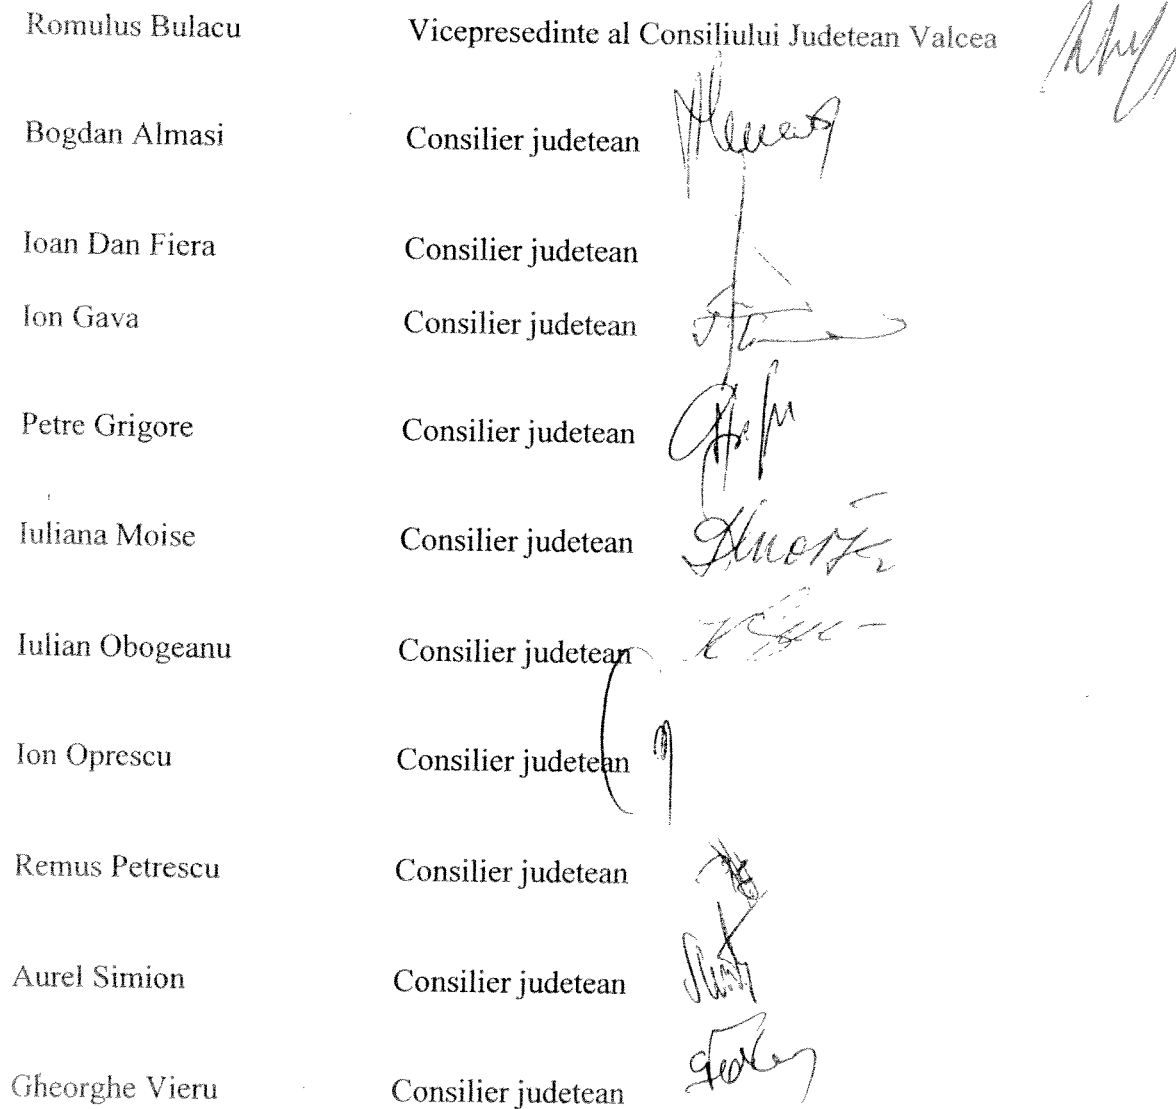 Romulus Bulacu Vicepresedinte al Consiliului Judetean Valcea
Bogdan Almasi Consilier judetean
Ioan Dan Fiera Consilier judetean
Ion Gava Consilier judetean
Petre Grigore Consilier judetean
Iuliana Moise Consilier judetean
Iulian Obogeanu Consilier judetean
Ion Oprescu Consilier judetean
Remus Petrescu Consilier judetean
Aurel Simion Consilier judetean
Gheorghe Vieru Consilier judetean